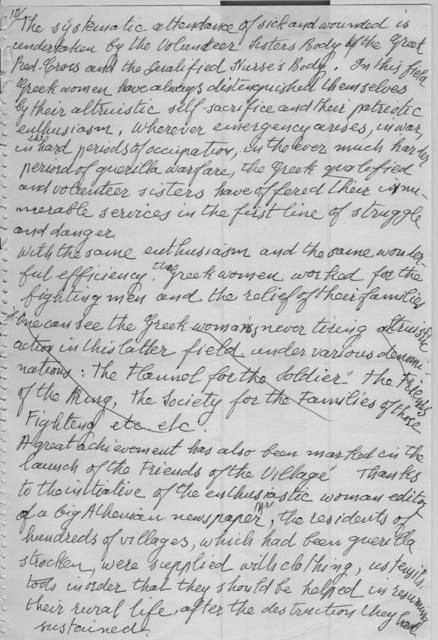 12/
The systematic attendance of sick and wounded is
undertaken by the Volunteer Sisters Body of the Greek
Red-Cross and the Qualified Nurse's Body. In this field
Greek women have always distinguished themselves
by their altruistic self-sacrifice and their patriotic
enthusiasm. Wherever emergency arises, in war,
in the hard periods of occupation, in the ever much harder
period of guerilla warfare, the Greek qualified
and volunteer sisters have offered their innu-
merable services in the first line of struggle
and danger.
With the same enthusiasm and the same wonder-
ful efficiency, the Greek women worked for the
fighting men and the relief of their families
One can see the Greek woman's never tiring altruistic
action in this latter field under various denomi
nations: "The Flannel for the Soldier" The Friends
of the Army, The Society for the Families of those
Fighting etc etc.
A great achievement has also been marked in the
launch of the Friends of the Village" Thanks
to the initiative of the enthusiastic woman editor
of a big Athenian newspaper, the residents of
hundreds of villages, which had been guerilla
strocken, were supplied with clothing, ustensils,
tools in order that they should be helped in resuming
their rural life after the destruction they have
sustained.